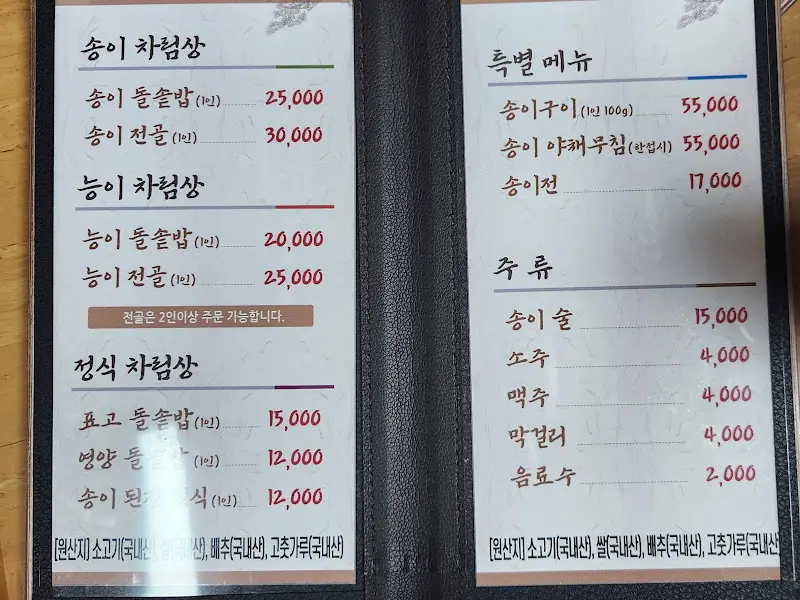 송이 차림상
송이 돌솥밥(1인) 25,000
송이 전골(1인) 30,000
능이 차림상
능이 돌솥밥(1인) 20,000
능이 전골(1인) 25,000
전골은 2인이상 주문 가능합니다.
정식 차림상
표고 돌솥밥(1인) 15,000
영양 돌솥밥(1인) 12,000
송이 된장 정식(1인) 12,000
[원산지] 소고기(국내산), 쌀(국내산), 배추(국내산), 고춧가루(국내산)
특별 메뉴
송이구이(1인 100g) 55,000
송이 야채무침(한접시) 55,000
송이전 17,000
주 류
송이 술 15,000
소주 4,000
맥주 4,000
막걸리 4,000
음료수 2,000
[원산지] 소고기(국내산), 쌀(국내산), 배추(국내산), 고춧가루(국내산